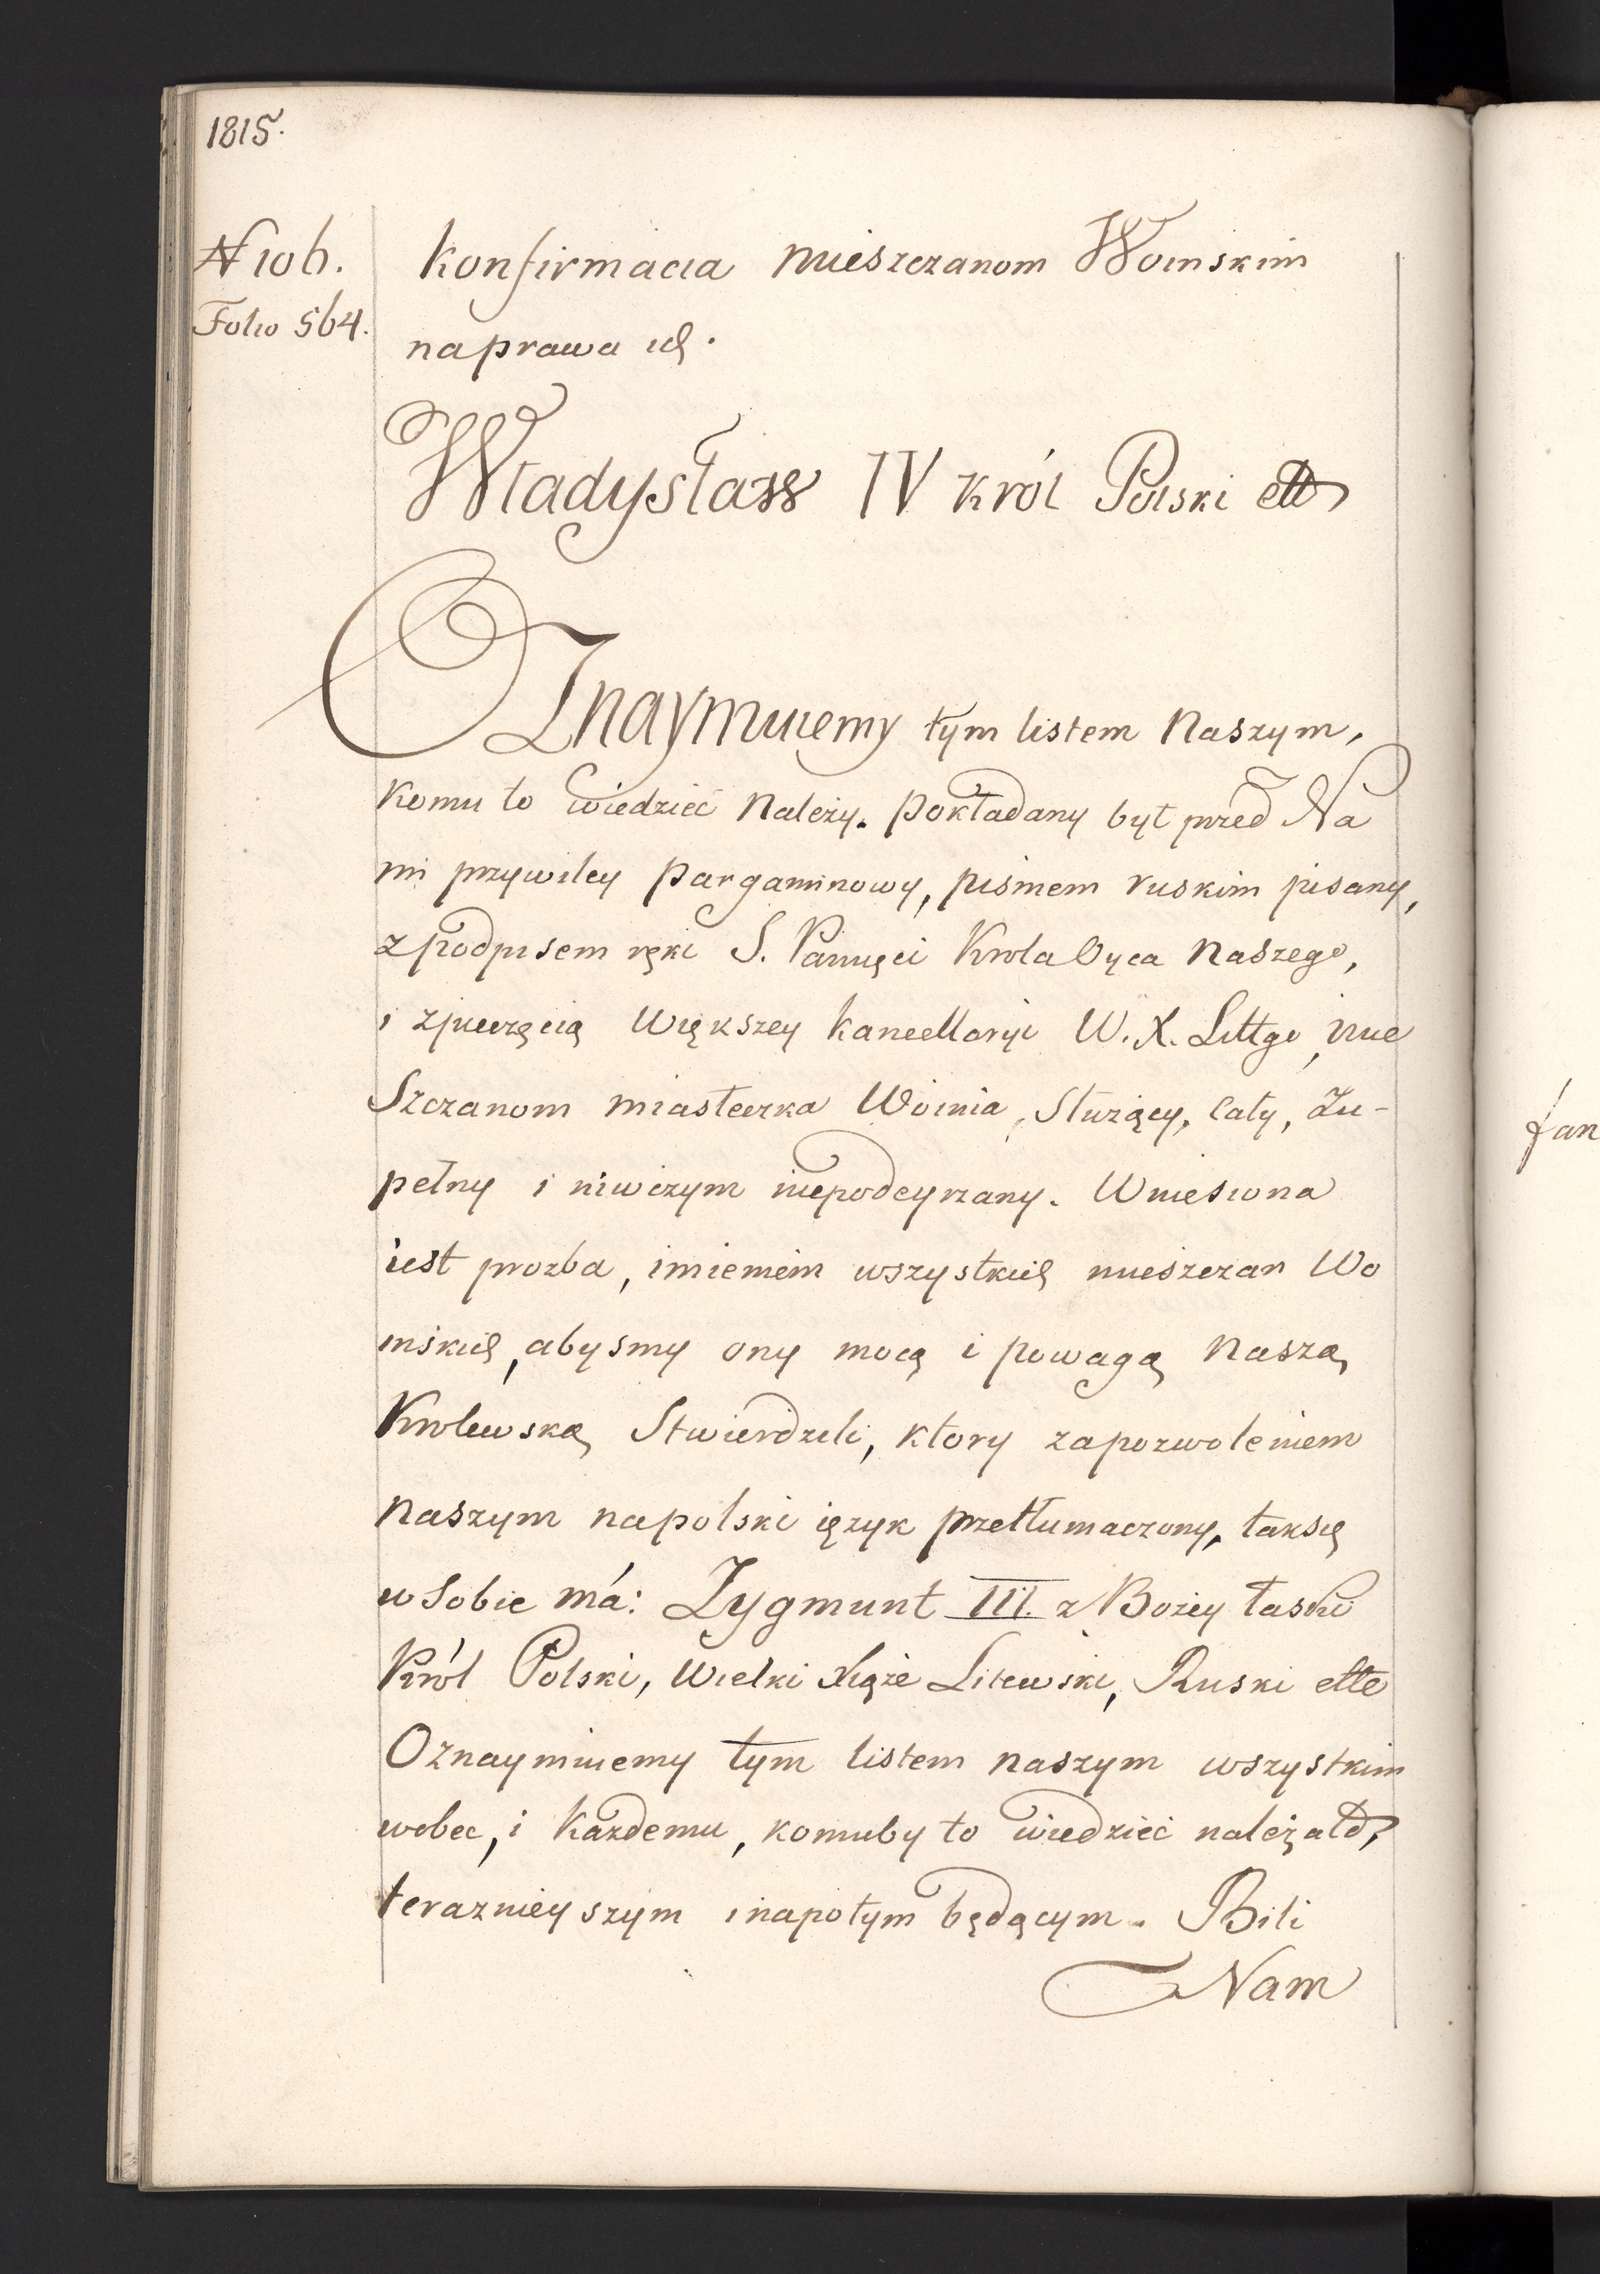 1815.
N 106.
Folio 564.
Konfirmacia mieszczanom Woinskim
naprawa ich.
Władysław IV Król Polski ettc
Oznaymuiemy tym listem Naszym,
Komu to wiedzieć Należy. Pokładany był przed Na
mi przywiley pargaminowy, pismem ruskim pisany,
z podpisem ręki S. Pamięci Krola Oyca Naszego,
i z pieczęcią większey kancellaryi W. X. Littgo, mie
szczanom miasteczka Woinia, służący, cały, zu-
pełny i niwczym niepodeyrzany. Wniesiona
iest prozba, imieniem wszystkich mieszczan Wo
inskich, abysmy ony mocą i powagą Naszą
Krolewską stwierdzili, ktory zapozwoleniem
naszym napolski ięzyk przetłumaczony, taksię
w sobie má: Zygmunt III. z Bożey łaski
Król Polski, Wielki Xiąże Litewski, Ruski ettc
Oznaymiuemy tym listem naszym wszystkim
wobec, i każdemu, komuby to wiedzieć należało,
terazniey szym inapotym będącym. Bili
Nam
Jan